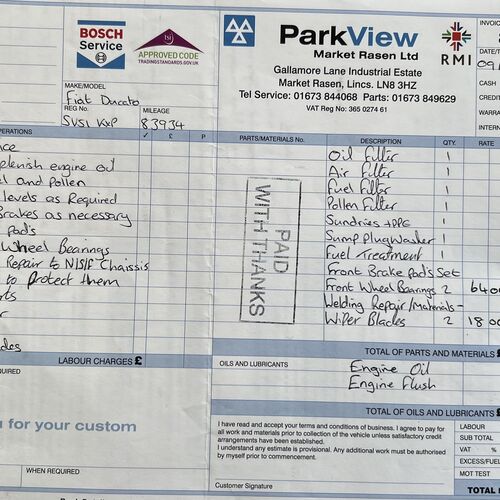 BOSCH
Service
tsi
APPROVED CODE
TRADINGSTANDARDS.GOV.UK
ParkView
Market Rasen Ltd
Gallamore Lane Industrial Estate
Market Rasen, Lincs. LN8 3HZ
Tel Service: 01673 844068 Parts: 01673 849629
VAT Reg No: 365 0274 61
RMI
INVOICE
DATE/T
09.
CASH
CREDIT
WARRANTY
INTERN
MAKE/MODEL
Fiat Ducato
REG No.
SV51 KXP
MILEAGE
83934
OPERATIONS
✓ £ P
PARTS/MATERIALS No. DESCRIPTION QTY. RATE
nce
plenish engine oil
el and Pollen
levels as Required
Brakes as necessary
Pad's
Wheel Bearings
Repair to N/S/F Chassis
to Protect them
rts
r
ades
Oil Filter 1
Air Filter 1
Fuel Filter 1
Pollen Filter 1
Sundries + PPE 1
Sump Plug Washer 1
Fuel Treatment 1
Front Brake Pad's Set
Front Wheel Bearings 2 640
Welding Repair/Materials -
Wiper Blades 2 180
PAID
WITH THANKS
LABOUR CHARGES £
TOTAL OF PARTS AND MATERIALS £
OILS AND LUBRICANTS
Engine Oil
Engine Flush
TOTAL OF OILS AND LUBRICANTS £
REQUIRED
u for your custom
WHEN REQUIRED
I have read and accept your terms and conditions of business. I agree to pay for
all work and materials prior to collection of the vehicle unless satisfactory credit
arrangements have been established.
I understand any estimate is provisional. Any additional work must be authorised
by myself prior to commencement.
Customer Signature
LABOUR
SUB TOTAL
VAT %
EXCESS/FUEL
MOT TEST
TOTAL